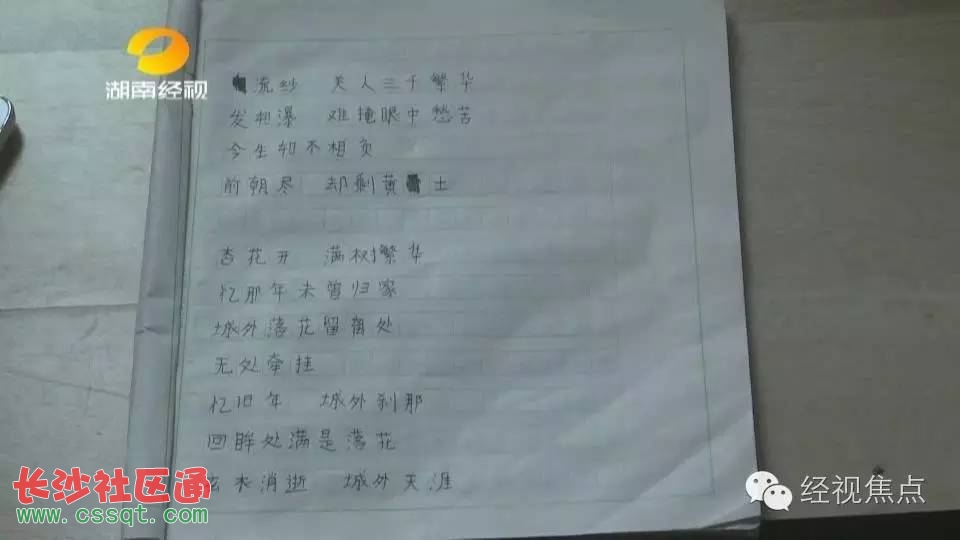 湖南经视
流纱 美人三千繁华
发如瀑 难掩眼中愁苦
今生如不相负
前朝尽 却剩黄 土
杏花开 满树繁华
忆那年未曾归家
城外落花留离处
无处牵挂
忆旧年 城外刹那
回眸处满是落花
未消逝 城外天涯
长沙社区通
www.cssqt.com
经视焦点